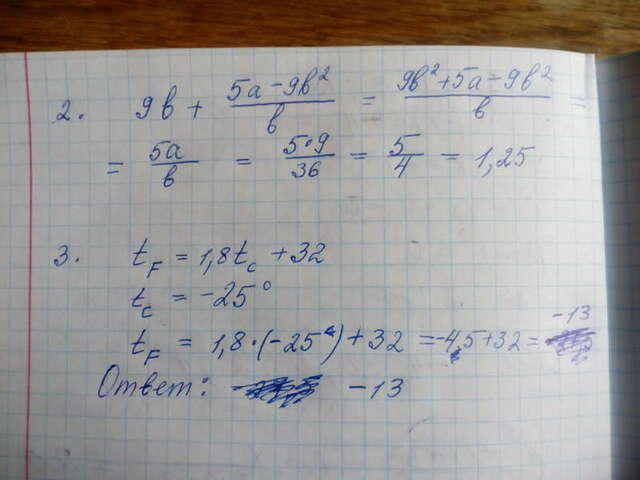 2. 9в + (5a - 9в²)/в = (9в² + 5a - 9в²)/в =
= 5a/в = 5·9/36 = 5/4 = 1,25
3. t_F = 1,8t_c + 32
t_c = -25°
t_F = 1,8·(-25°) + 32 = -45 + 32 = -13
Ответ: -13